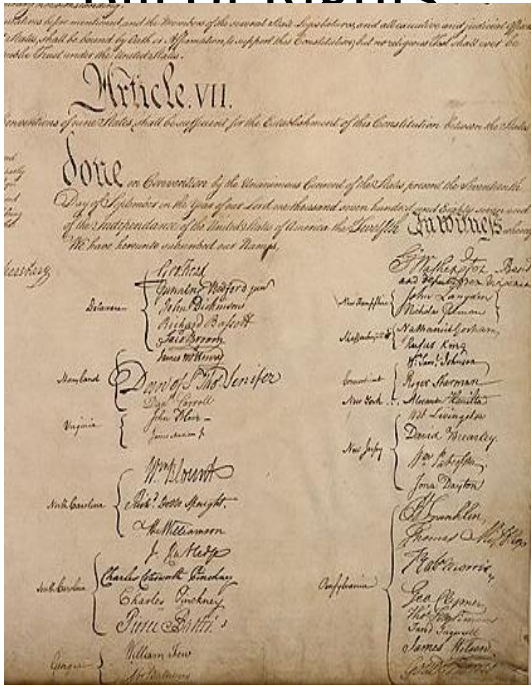 before mentioned, and the Members of the several State Legislatures, and all executive and judicial Officers
States, shall be bound by Oath or Affirmation, to support this Constitution; but no religious Test shall ever be
public Trust under the United States.
Article. VII.
Conventions of nine States, shall be sufficient for the Establishment of this Constitution between the States
done in Convention by the Unanimous Consent of the States present the Seventeenth
Day of September in the Year of our Lord one thousand seven hundred and Eighty seven and
of the Independance of the United States of America the Twelfth In Witness whereof
We have hereunto subscribed our Names,
Delaware
Geo: Read
Gunning Bedford jun
John Dickinson
Richard Bassett
Jaco: Broom
Maryland
James McHenry
Dan of St Thos. Jenifer
Danl Carroll
Virginia
John Blair
James Madison Jr.
North Carolina
Wm Blount
Richd. Dobbs Spaight.
Hu Williamson
South Carolina
J. Rutledge
Charles Cotesworth Pinckney
Charles Pinckney
Pierce Butler
Georgia
William Few
Abr Baldwin
G. Washington Presidt
and deputy from Virginia
New Hampshire
John Langdon
Nicholas Gilman
Massachusetts
Nathaniel Gorham
Rufus King
Connecticut
Wm. Saml. Johnson
Roger Sherman
New York
Alexander Hamilton
New Jersey
Wil: Livingston
David Brearley.
Wm. Paterson.
Jona: Dayton
Pensylvania
B Franklin
Thomas Mifflin
Robt Morris
Geo. Clymer
Thos. FitzSimons
Jared Ingersoll
James Wilson
Gouv Morris